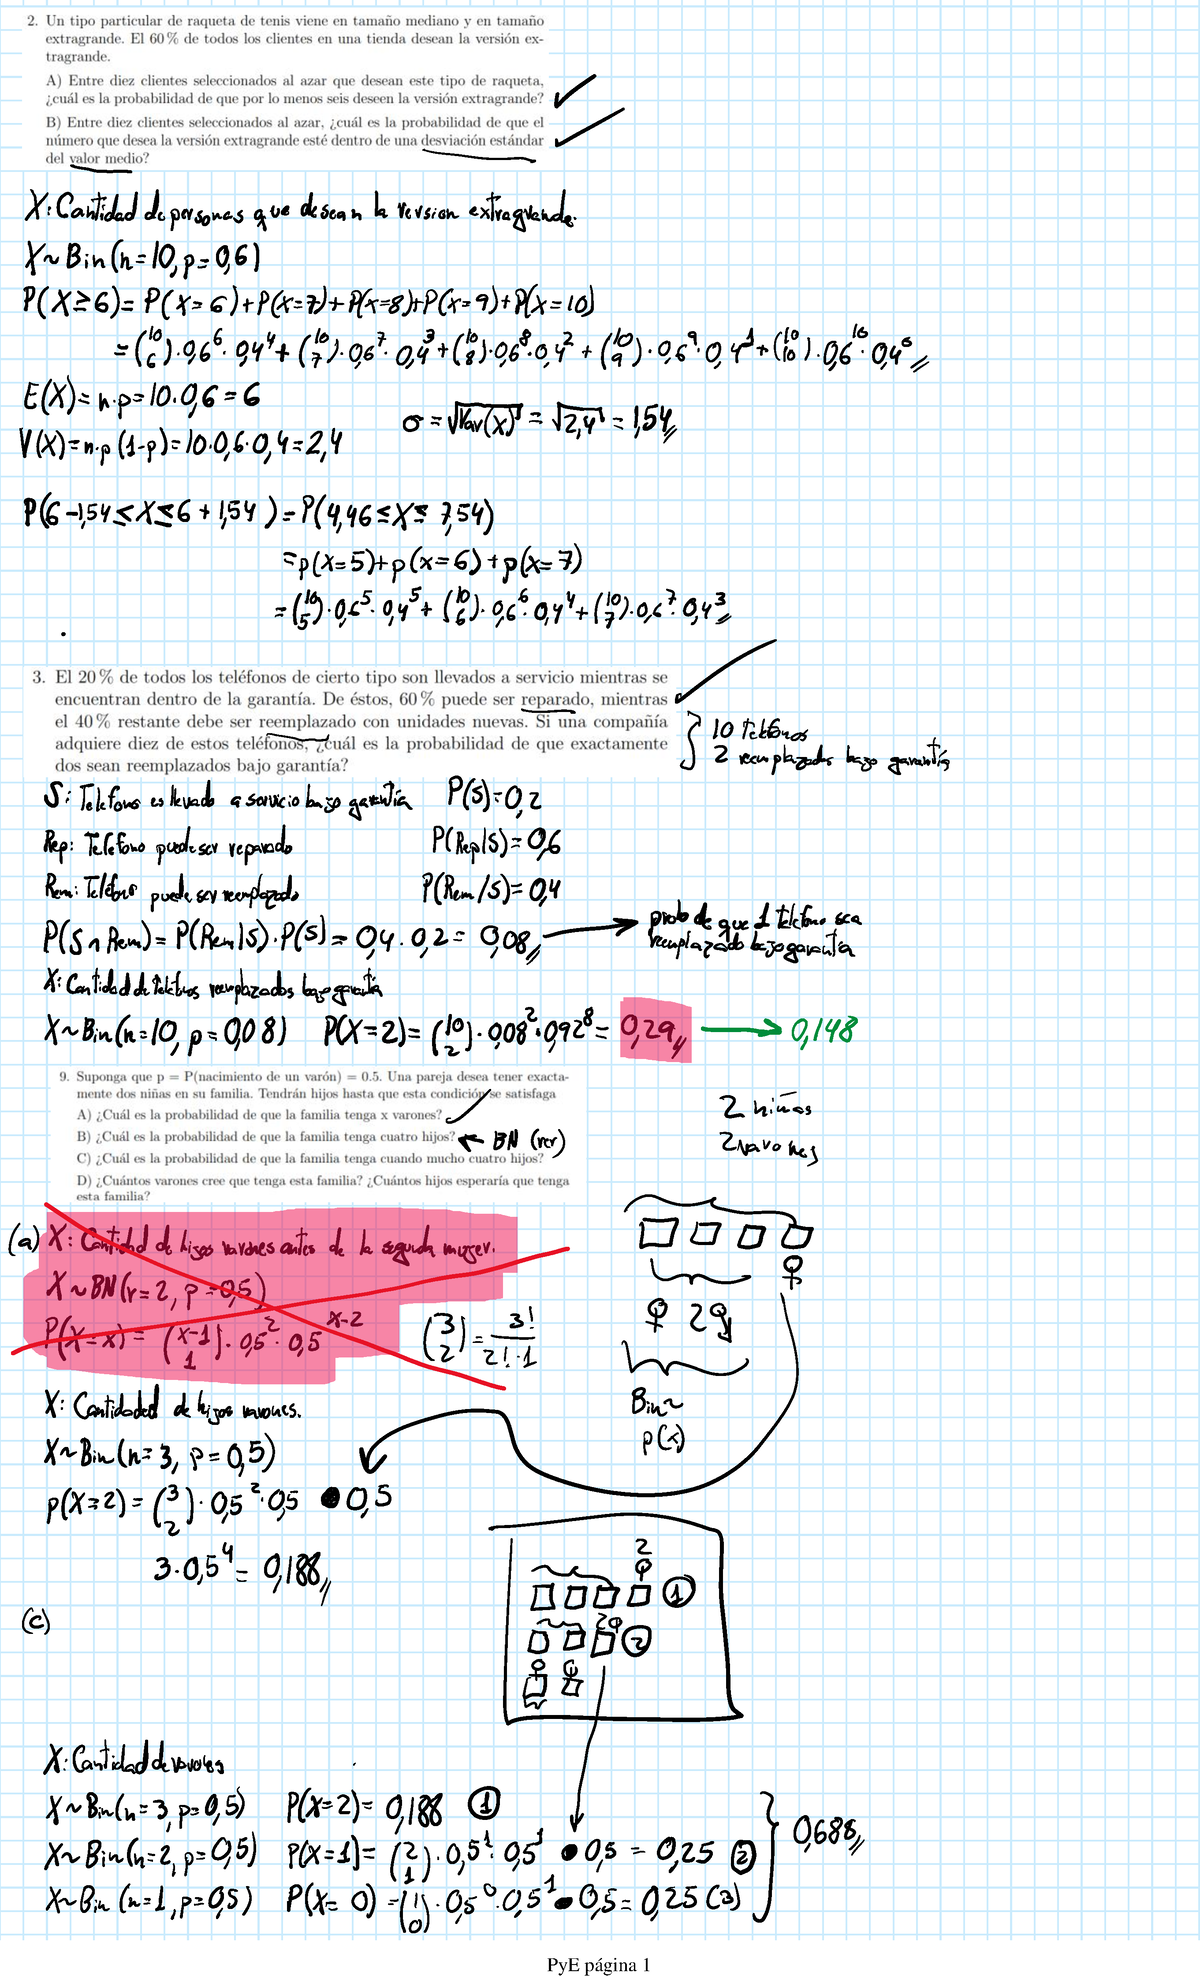 2. Un tipo particular de raqueta de tenis viene en tamaño mediano y en tamaño
extragrande. El 60 % de todos los clientes en una tienda desean la versión ex-
tragrande.
A) Entre diez clientes seleccionados al azar que desean este tipo de raqueta,
¿cuál es la probabilidad de que por lo menos seis deseen la versión extragrande?
B) Entre diez clientes seleccionados al azar, ¿cuál es la probabilidad de que el
número que desea la versión extragrande esté dentro de una desviación estándar
del valor medio?
X: Cantidad de personas que desean la version extragrande.
X ~ Bin(n=10, p=0,6)
P(X≥6) = P(X=6)+P(X=7)+P(X=8)+P(X=9)+P(X=10)
= (10 6)·0,6^6·0,4^4 + (10 7)·0,6^7·0,4^3 + (10 8)·0,6^8·0,4^2 + (10 9)·0,6^9·0,4^1 + (10 10)·0,6^10·0,4^0
E(X) = n·p = 10·0,6 = 6
σ = √Var(X) = √2,4 = 1,54
V(X) = n·p (1-p) = 10·0,6·0,4 = 2,4
P(6-1,54 ≤ X ≤ 6+1,54) = P(4,46 ≤ X ≤ 7,54)
= p(X=5)+p(x=6)+p(x=7)
= (10 5)·0,6^5·0,4^5 + (10 6)·0,6^6·0,4^4 + (10 7)·0,6^7·0,4^3
3. El 20 % de todos los teléfonos de cierto tipo son llevados a servicio mientras se
encuentran dentro de la garantía. De éstos, 60 % puede ser reparado, mientras
el 40 % restante debe ser reemplazado con unidades nuevas. Si una compañía
adquiere diez de estos teléfonos, ¿cuál es la probabilidad de que exactamente
dos sean reemplazados bajo garantía?
10 Telefonos
2 reemplazados bajo garantía
S: Telefono es llevado a servicio bajo garantía P(S)=0,2
Rep: Telefono puede ser reparado P(Rep|S)=0,6
Rem: Teléfono puede ser reemplazado P(Rem/S)=0,4
P(S∩Rem) = P(Rem|S)·P(S) = 0,4·0,2 = 0,08 → prob de que 1 telefono sea
reemplazado bajo garantía
X: Cantidad de telefonos reemplazados bajo garantía
X~Bin(n=10, p=0,08) P(X=2) = (10 2)·0,08^2·0,92^8 = 0,29 → 0,148
9. Suponga que p = P(nacimiento de un varón) = 0.5. Una pareja desea tener exacta-
mente dos niñas en su familia. Tendrán hijos hasta que esta condición se satisfaga
A) ¿Cuál es la probabilidad de que la familia tenga x varones?
B) ¿Cuál es la probabilidad de que la familia tenga cuatro hijos? ← BN (ver)
C) ¿Cuál es la probabilidad de que la familia tenga cuando mucho cuatro hijos?
D) ¿Cuántos varones cree que tenga esta familia? ¿Cuántos hijos esperaría que tenga
esta familia?
2 niñas
2 varones
(a) X: Cantidad de hijos varones antes de la segunda mujer.
X ~ BN(r=2, p=0,5)
P(X=x) = (x-1 1)·0,5^2·0,5^x-2
(3 2) = 3!/2!·1
♀ 2♂
Bin~
p(x)
X: Cantidaded de hijos varones.
X~Bin(n=3, p=0,5)
p(X=2) = (3 2)·0,5^2·0,5 • 0,5
3·0,5^4 = 0,188
(c)
2
♀
1
2♀
2
♀ ♀
X: Cantidad de varones
X~Bin(n=3, p=0,5) P(X=2)= 0,188 1
X~Bin(n=2, p=0,5) P(X=1)= (2 1)·0,5^1·0,5^1 • 0,5 = 0,25 2
0,688
X~Bin (n=1, p=0,5) P(X=0) = (1 0)·0,5^0·0,5^1 • 0,5 = 0,25 (3)
PyE página 1